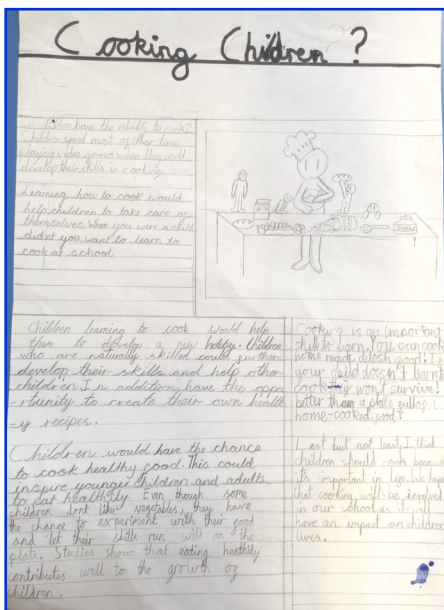 Cooking Children?
Do children have the ability to cook?
Children spend most of their time
playing video games when they could
develop their skills in cooking.
Learning how to cook would
help children to take care of
themselves. When you were a child
didn't you want to learn to
cook at school
Children learning to cook would help
them to develop a new hobby. Children
who are naturally skilled could further
develop their skills and help other
children. In addition, have the oppo
-rtunity to create their own health
-y recipes.
Children would have the chance
to cook healthy food. This could
inspire younger children and adults
to eat healthily. Even though some
children dont like vegetables, they have
the chance to experiment with their food
and let their skills run will on the
plate. Studies show that eating healthily
contributes well to the growth of
children.
Cooking is an important
skill to learn. You can cook
home made delish food! If
your child doesn't learn to
cook they won't survive.
better than a plate full of
home-cooked food?
Last but not least, I think
children should cook because
it's important in life. We hope
that cooking will be involved
in our school as it will
have an impact on children
lives.